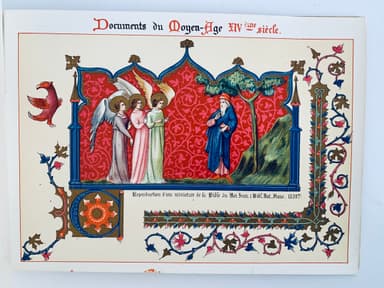 Documents du Moyen-Age XIV ème siècle.
Reproduction d'une miniature de la Bible du Roi Jean (Bibl. Nat. Manc.